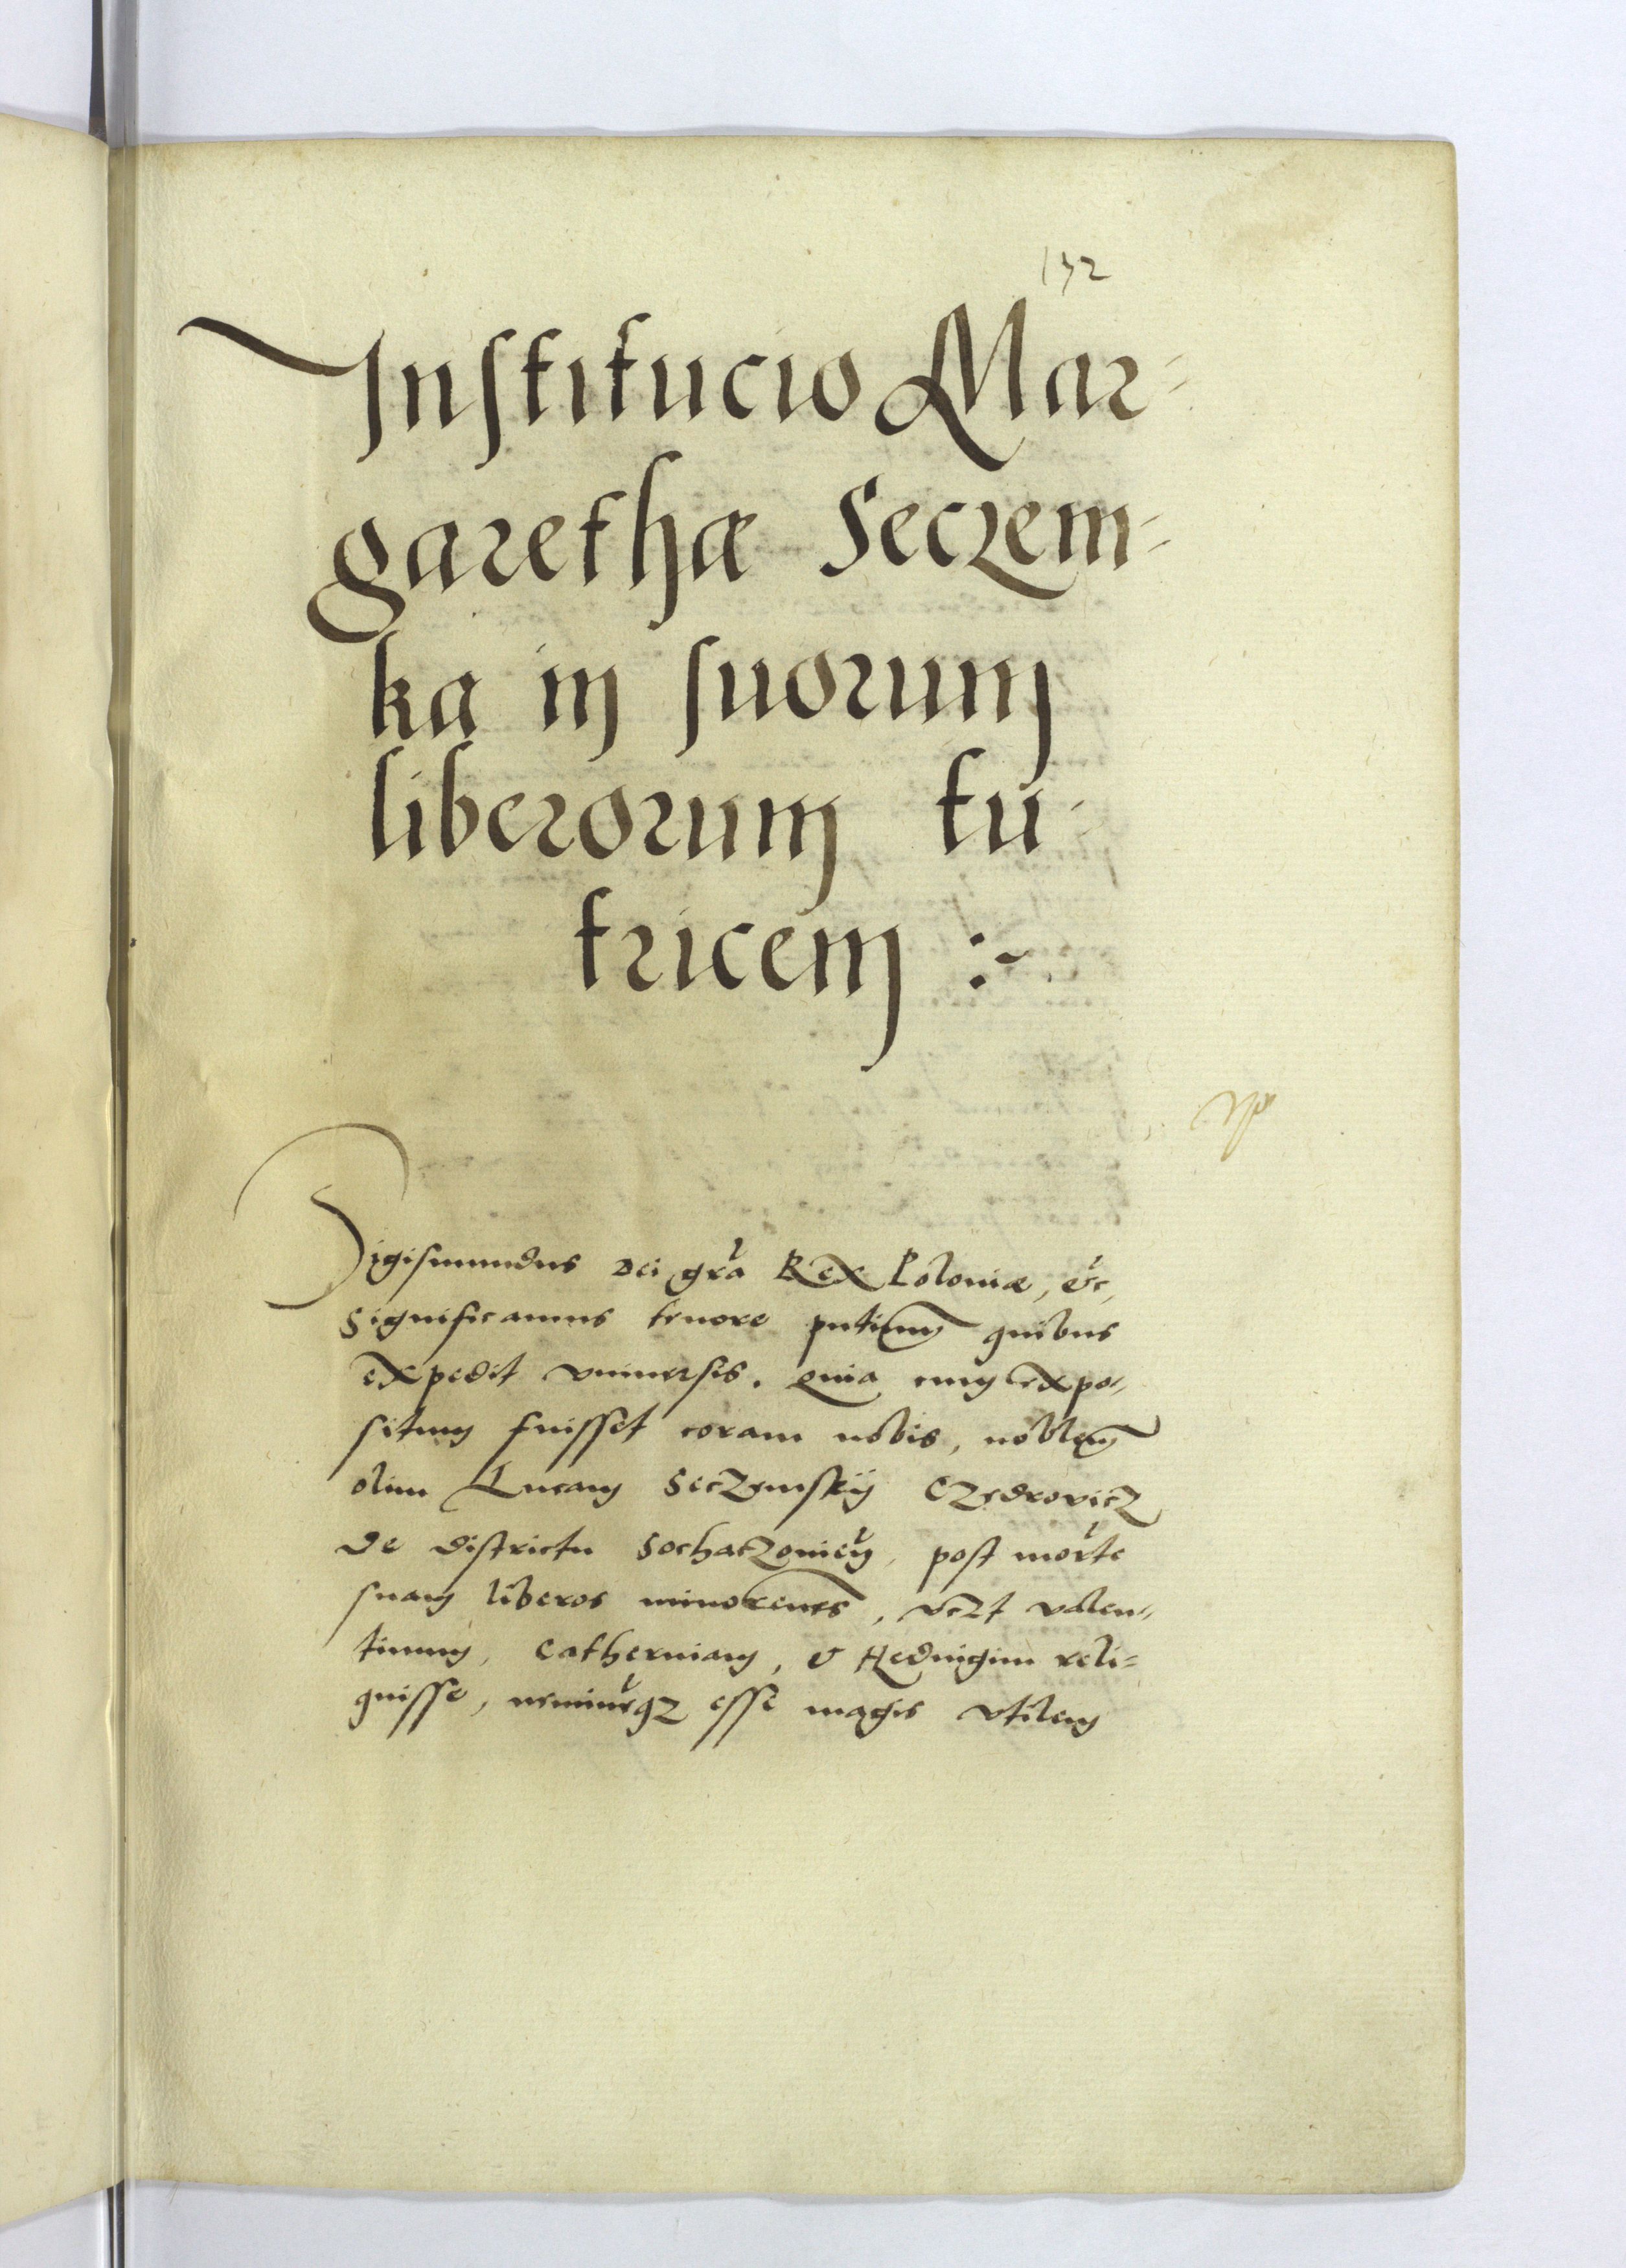 132
Institucio Mar-
garethæ Seczem-
ka in suorum
liberorum tu-
tricem :~
Sigismundus Dei gra Rex Poloniæ, etc,
Significamus tenore pntium quibus
expedit vniuersis. Quia cum expo-
situm fuisset coram nobis, noblem
olim Lucam Seczemskÿ Czedrovicz
de districtu Sochaczouien, post morte
suam liberos minorenes, vczt Valen-
tinum, Catherniam, & Heduigim reli-
quisse, neminēqz esse magis vtilem